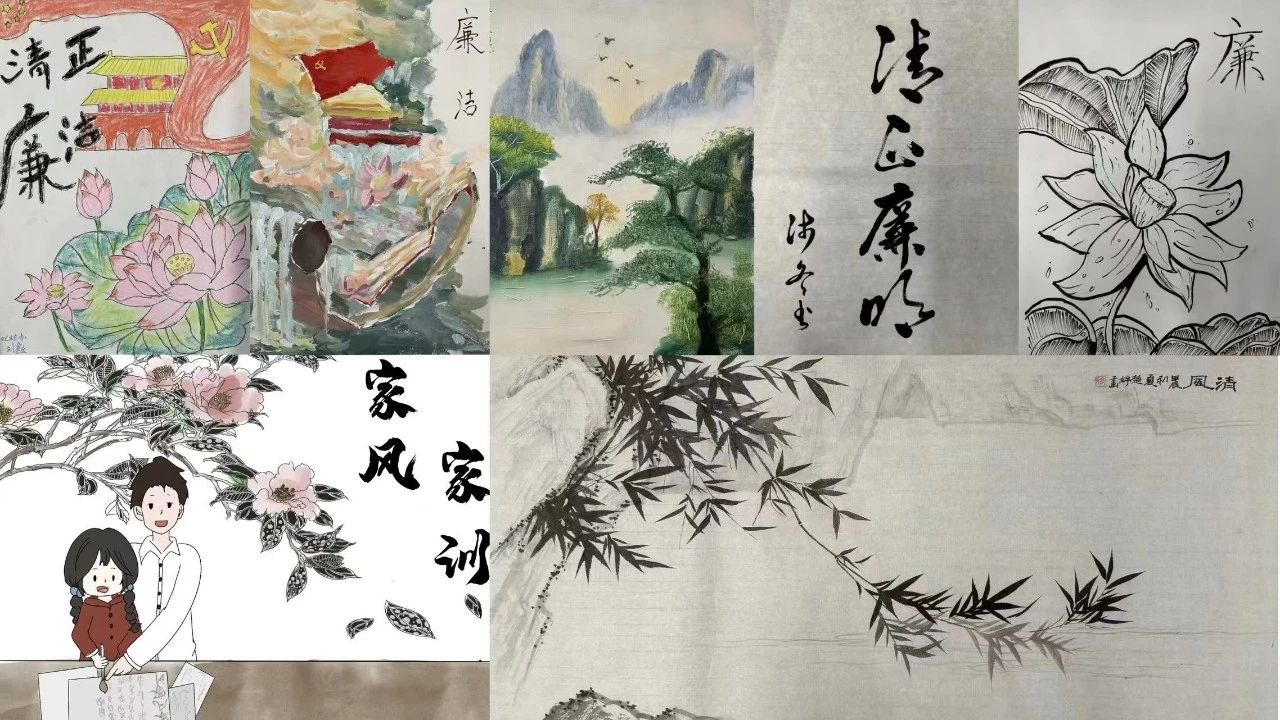 清正
廉洁
廉
洁
清正廉明
廉
家风
家训
清风